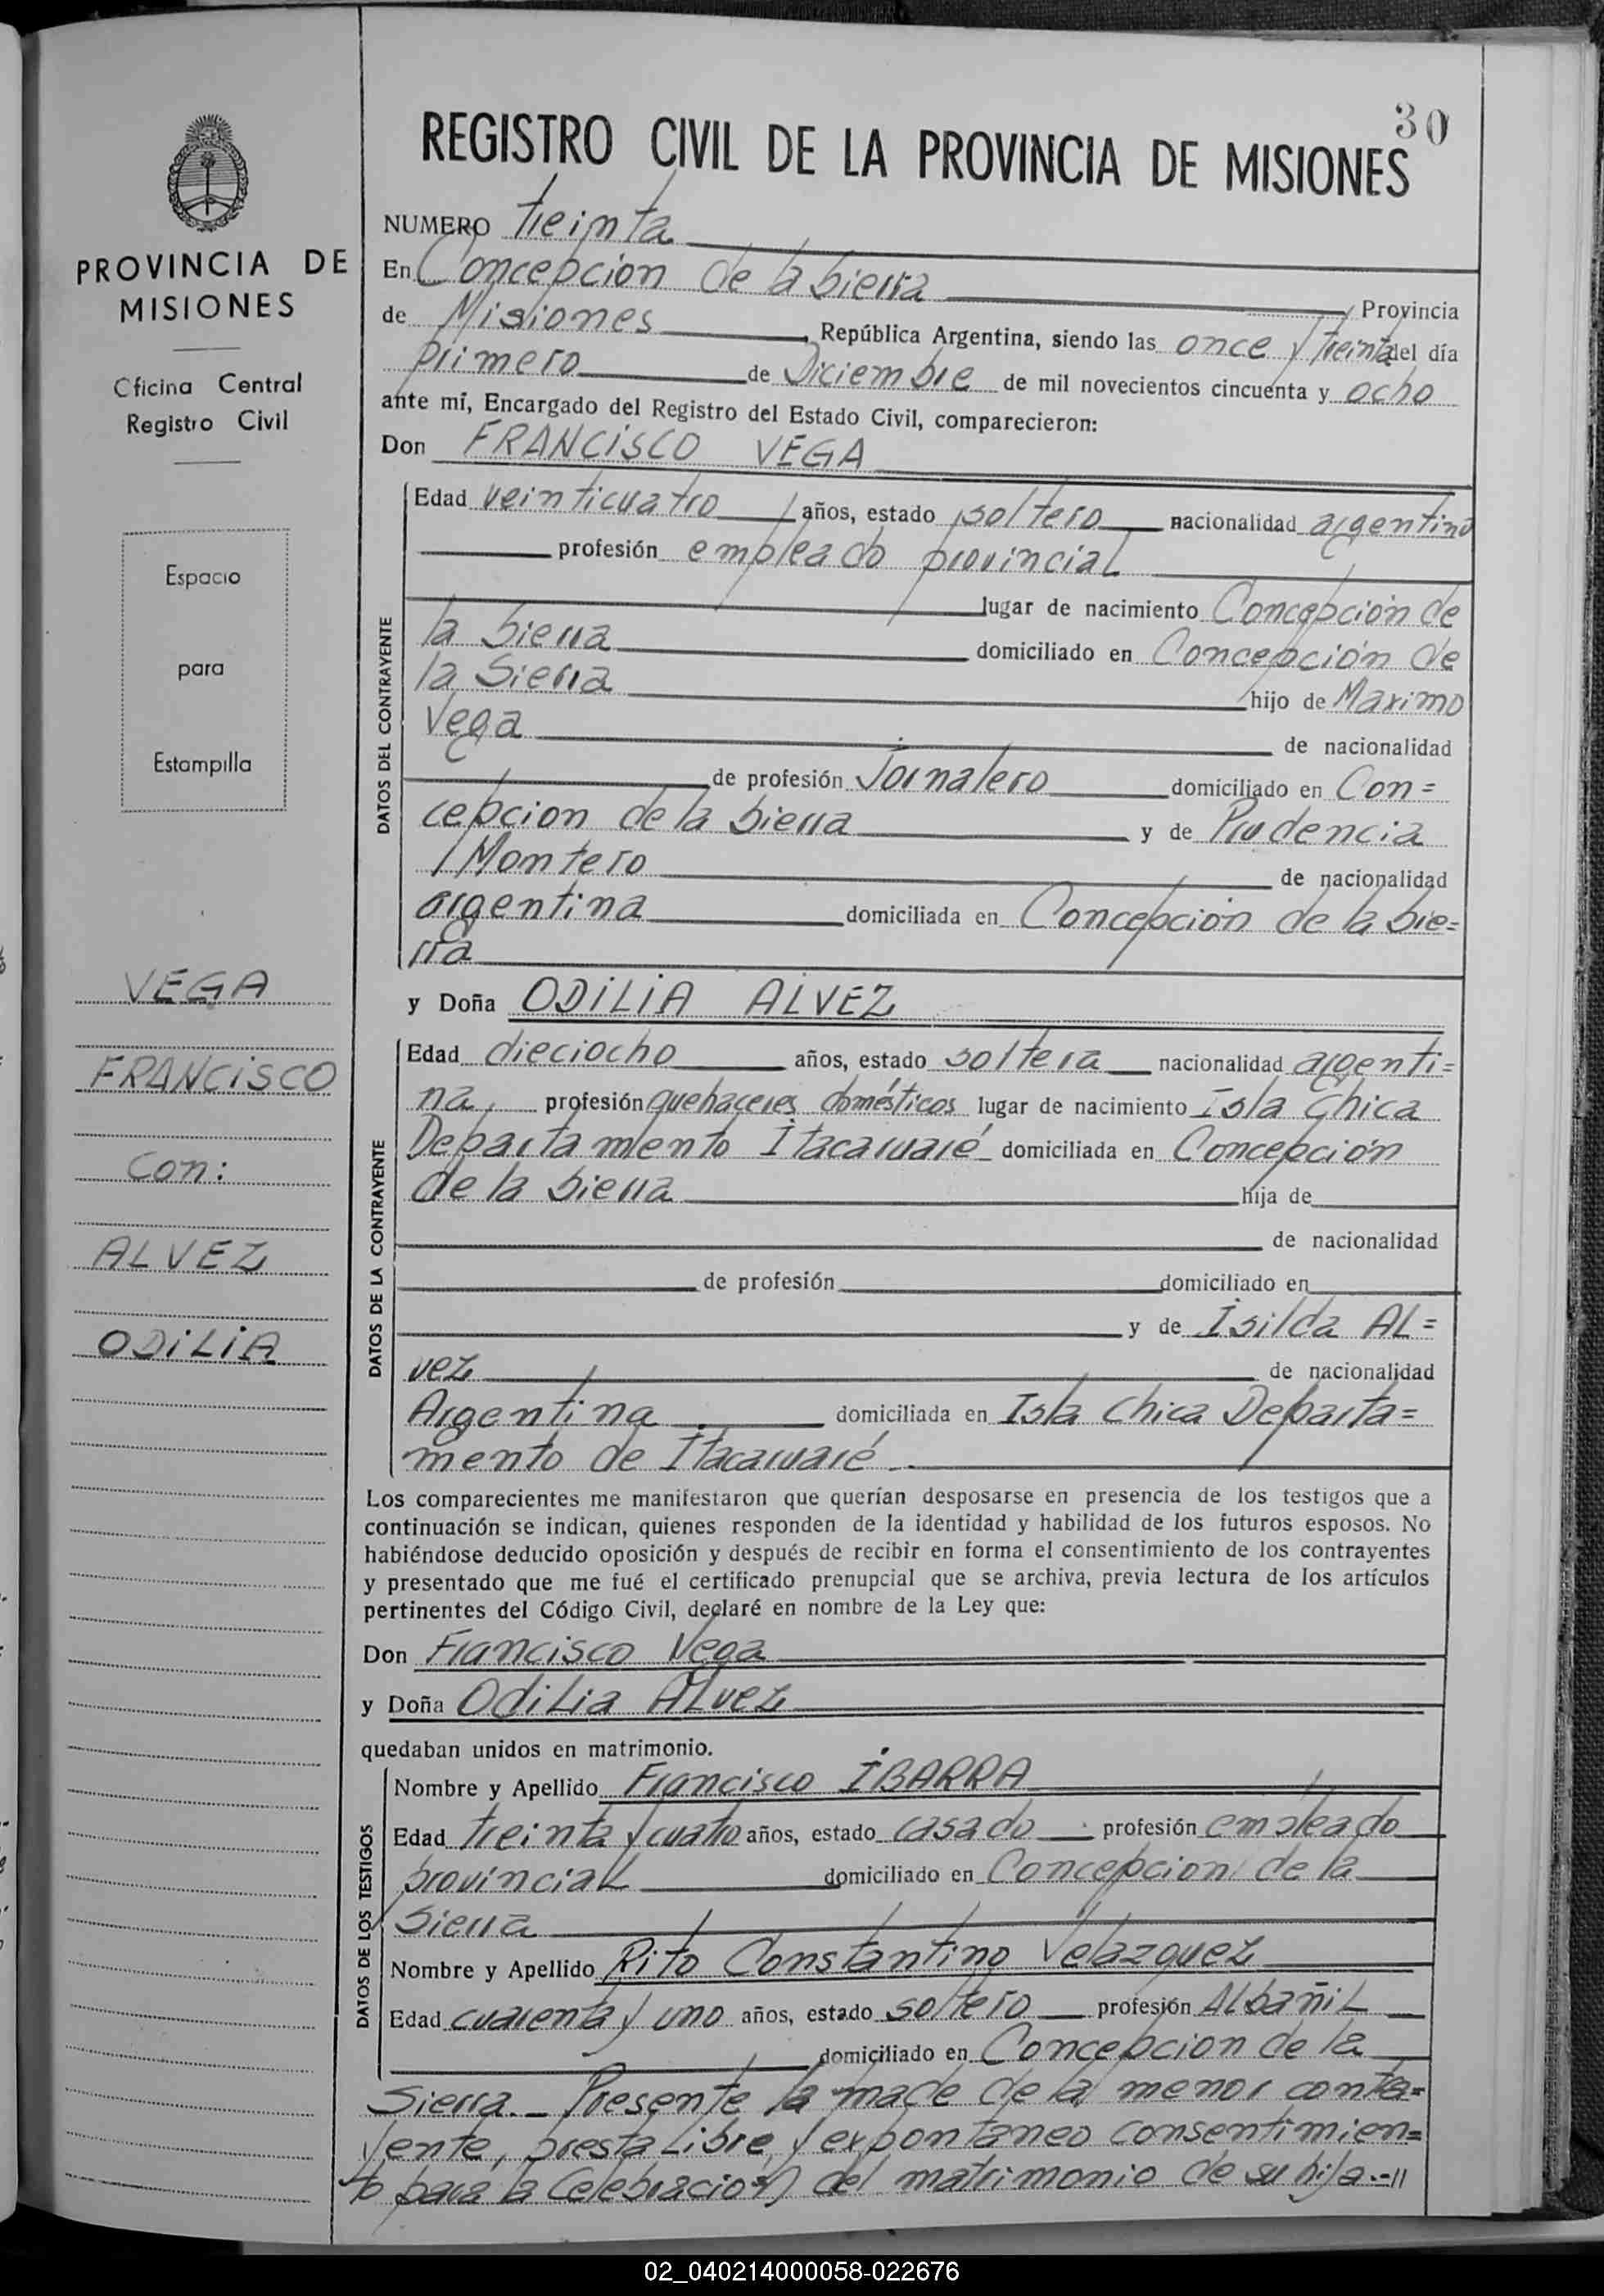 30
REGISTRO CIVIL DE LA PROVINCIA DE MISIONES
PROVINCIA DE
MISIONES
Oficina Central
Registro Civil
Espacio
para
Estampilla
VEGA
FRANCISCO
Con:
ALVEZ
ODILIA
NUMERO treinta
En Concepcion de la Sierra Provincia
de Misiones República Argentina, siendo las once y treinta del día
primero de Diciembre de mil novecientos cincuenta y ocho
ante mí, Encargado del Registro del Estado Civil, comparecieron:
Don FRANCISCO VEGA
DATOS DEL CONTRAYENTE
Edad veinticuatro años, estado soltero nacionalidad argentino
profesión empleado provincial
lugar de nacimiento Concepción de
la Sierra domiciliado en Concepción de
la Sierra hijo de Maximo
Vega de nacionalidad
de profesión Jornalero domiciliado en Con=
cepcion de la Sierra y de Prudencia
Montero de nacionalidad
argentina domiciliada en Concepción de la Sie=
rra
y Doña ODILIA ALVEZ
DATOS DE LA CONTRAYENTE
Edad dieciocho años, estado soltera nacionalidad argenti=
na, profesión quehaceres domésticos lugar de nacimiento Isla Chica
Departamento Itacaruaré domiciliada en Concepción
de la Sierra hija de
de nacionalidad
de profesión domiciliado en
y de Isilda AL=
vez de nacionalidad
Argentina domiciliada en Isla Chica Departa=
mento de Itacaruaré.
Los comparecientes me manifestaron que querían desposarse en presencia de los testigos que a
continuación se indican, quienes responden de la identidad y habilidad de los futuros esposos. No
habiéndose deducido oposición y después de recibir en forma el consentimiento de los contrayentes
y presentado que me fué el certificado prenupcial que se archiva, previa lectura de los artículos
pertinentes del Código Civil, declaré en nombre de la Ley que:
Don Francisco Vega
y Doña Odilia Alvez
quedaban unidos en matrimonio.
DATOS DE LOS TESTIGOS
Nombre y Apellido Francisco IBARRA
Edad treinta y cuatro años, estado casado profesión empleado
provincial domiciliado en Concepcion de la
Sierra
Nombre y Apellido Rito Constantino Velazquez
Edad cuarenta y uno años, estado soltero profesión Albañil
domiciliado en Concepcion de la
Sierra.- Presente la made de la menor contra=
yente, presta libre y expontaneo consentimien=
to para la celebración del matrimonio de su hija.-//
02_040214000058-022676